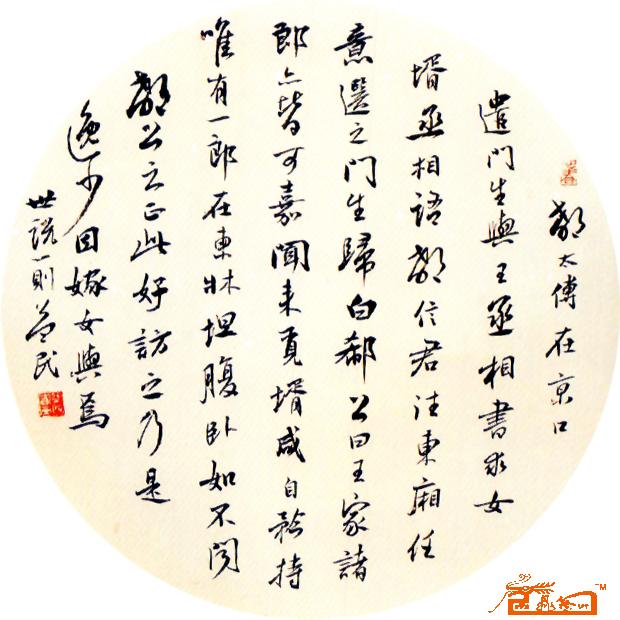 郗太傅在京口
遣門生與王丞相書求女
壻丞相語郗信君往東廂任
意選之門生歸白郗公曰王家諸
郎亦皆可嘉聞来覓壻咸自矜持
唯有一郎在東牀坦腹卧如不聞
郗公云正此好訪之乃是
逸少因嫁女與焉
世說一則益民